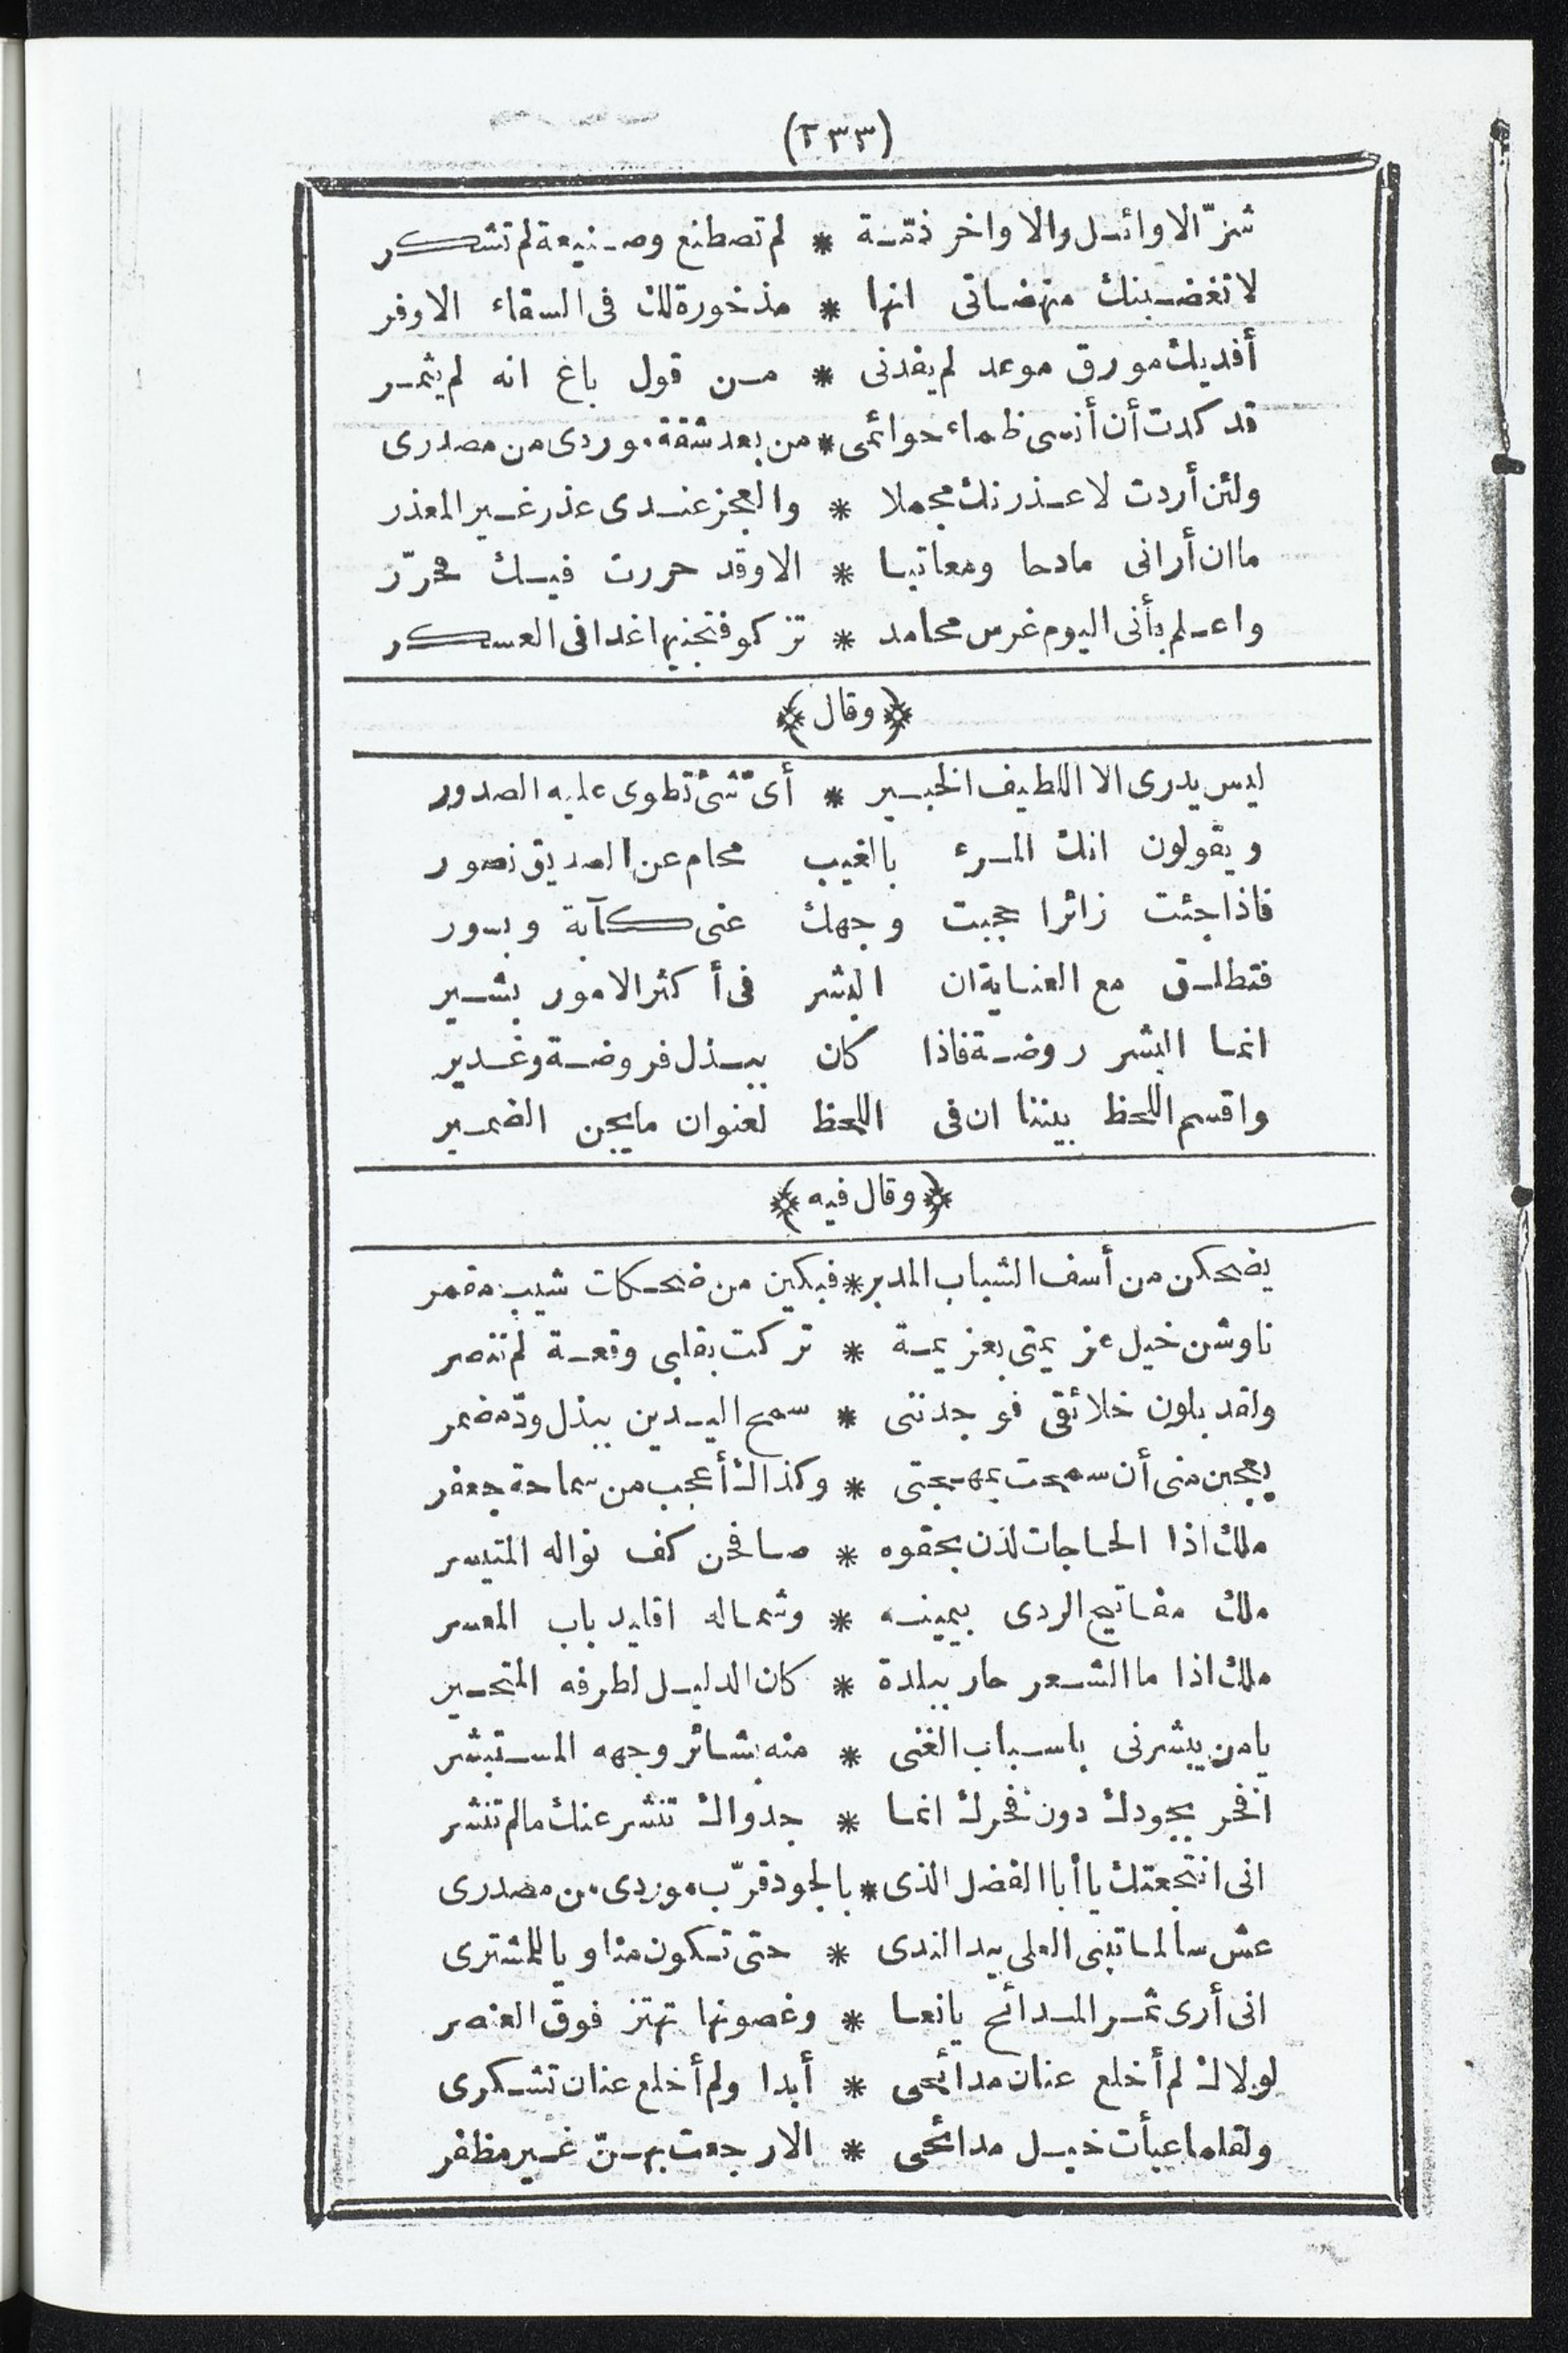 (٢٣٣)
شرّ الاوائل والاواخر ذمّة * لم تصطنع وصنيعة لم تشكر
لا تغضبنك منهضاتى انها * مذخورة لك فى السقاء الاوفر
أفديك مورق موعد لم يفدنى * من قول باغ انه لم يثمر
قد كدت أن أنسى ظماء حوائمى * من بعد شقة موردى من مصدرى
ولئن أردت لاعذرنك مجملا * والعجز عندى عذر غير المعذر
ما ان أرانى مادحا ومعاتبا * الا وقد حررت فيك محرّر
واعلم بأنى اليوم غرس محامد * تزكو فتجنيها غدا فى العسكر
﴿وقال﴾
ليس يدرى الا اللطيف الخبير * أىّ شئ تطوى عليه الصدور
ويقولون انك المرء بالغيب محام عن الصديق نصور
فاذا جئت زائرا حجبت وجهك عنى كآبة وبسور
فتطلق مع العناية ان البشر فى أكثر الامور بشير
انما البشر روضة فاذا كان ببذل فروضة وغدير
واقسم اللحظ بيننا ان فى اللحظ لعنوان ما يجن الضمير
﴿وقال فيه﴾
يضحكن من أسف الشباب المدبر * فبكين من ضحكات شيب مقمر
ناوشن خيل عزيمتى بعزيمة * تركت بقلبى وقعة لم تنصر
ولقد بلون خلائقى فوجدننى * سمح اليدين ببذل ودّ مضمر
يعجبن منى أن سمحت بمهجتى * وكذاك أعجب من سماحة جعفر
ملك اذا الحاجات لذن بحقوه * صافحن كف نواله المتيسر
ملك مفاتيح الردى بيمينه * وشماله اقليد باب المعسر
ملك اذا ما الشعر حار ببلدة * كان الدليل لطرفه المتحير
يا من يبشرنى باسباب الغنى * منه بشائر وجهه المستبشر
افخر بجودك دون فخرك انما * جدواك تنشر عنك ما لم تنشر
انى انتجعتك يا أبا الفضل الذى * بالجود قرّب موردى من مصدرى
عش سالما تبنى العلى بيد الندى * حتى تكون مناويا للمشترى
انى أرى ثمر المدائح يانعا * وغصونها تهتز فوق العنصر
لولاك لم أخلع عنان مدائحى * أبدا ولم أخلع عنان تشكرى
ولقلما عبأت خيل مدائحى * الا رجعت بهنّ غير مظفر